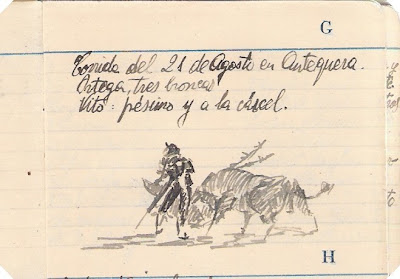 G
Corrida del 21 de Agosto en Antequera.
Ortega, tres broncas
Vito: pésimo y a la cárcel.
H